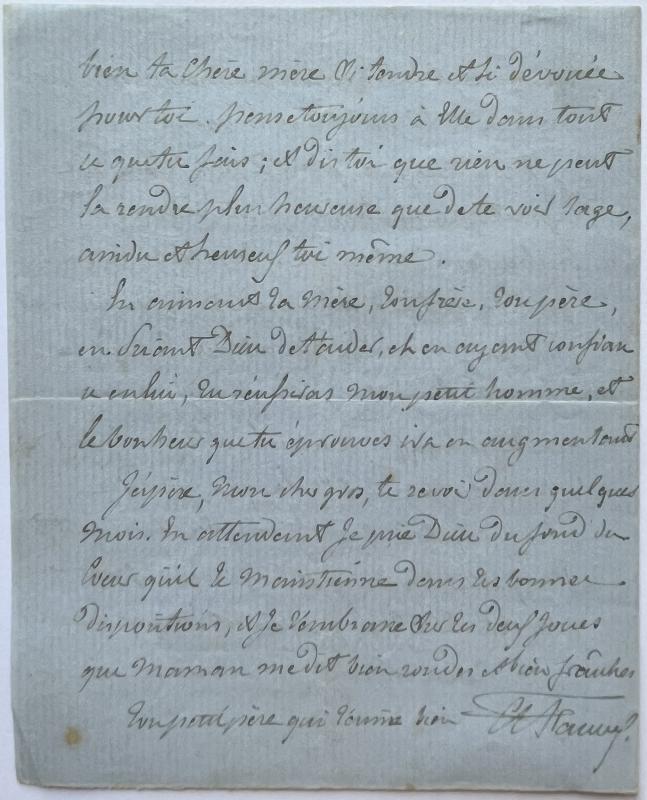 bien ta chère mère si tendre et si dévouée
pour toi. pense toujours à Elle dans tout
ce que tu fais; et dis toi que rien ne peut
la rendre plus heureuse que de te voir sage,
assidu et heureux toi même.
En aimant ta mère, ton frère, ton père,
en priant Dieu de t'aider, et en ayant confian
ce en lui, tu réussiras mon petit homme, et
le bonheur que tu éprouves ira en augmentant
J'espère, mon cher gros, te revoir dans quelques
mois. En attendant je prie Dieu du fond du
Cœur qu'il te maintienne dans tes bonnes
dispositions, et je t'embrasse sur tes deux joues
que Maman me dit bien rondes et bien fraîches
Ton petit père qui t'aime bien